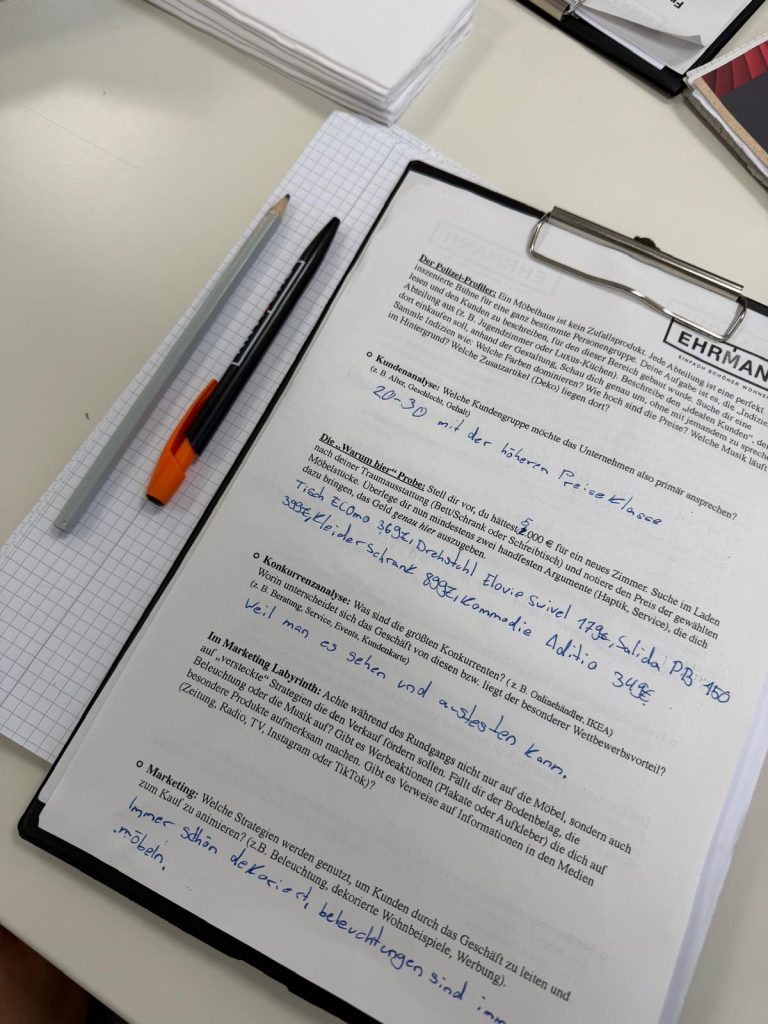 EHRMANN
EINFACH SCHÖNER WOHNEN
Der Polizei-Profiler: Ein Möbelhaus ist kein Zufallsprodukt. Jede Abteilung ist eine perfekt
inszenierte Bühne für eine ganz bestimmte Personengruppe. Deine Aufgabe ist es, die „Indizien
lesen und den Kunden zu beschreiben, für den dieser Bereich gebaut wurde. Suche dir eine
Abteilung aus (z. B. Jugendzimmer oder Luxus-Küchen). Beschreibe den „Idealen Kunden“, der
dort einkaufen soll, anhand der Gestaltung, Schau dich genau um, ohne mit jemandem zu sprechen
Sammle Indizien wie: Welche Farben dominieren? Wie hoch sind die Preise? Welche Musik läuft
im Hintergrund? Welche Zusatzartikel (Deko) liegen dort?
o Kundenanalyse: Welche Kundengruppe möchte das Unternehmen also primär ansprechen?
(z. B. Alter, Geschlecht, Gehalt)
20-30 mit der höheren Preiseklasse
Die „Warum hier“ Probe: Stell dir vor, du hättest 5.000 € für ein neues Zimmer. Suche im Laden
nach deiner Traumausstattung (Bett/Schrank oder Schreibtisch) und notiere den Preis der gewählten
Möbelstücke. Überlege dir nun mindestens zwei handfesten Argumente (Haptik, Service), die dich
dazu bringen, das Geld genau hier auszugeben.
Tisch ECOmo 369€, Drehstuhl Elovie Swivel 179€, Salida PB 150
399€, Kleiderschrank 899€, Kommodie Aditio 349€
o Konkurrenzanalyse: Was sind die größten Konkurrenten? (z. B. Onlinehändler, IKEA)
Worin unterscheidet sich das Geschäft von diesen bzw. liegt der besonderer Wettbewerbsvorteil?
(z. B. Beratung, Service, Events, Kundenkarte)
Weil man es sehen und austesten kann.
Im Marketing Labyrinth: Achte während des Rundgangs nicht nur auf die Möbel, sondern auch
auf „versteckte“ Strategien die den Verkauf fördern sollen. Fällt dir der Bodenbelag, die
Beleuchtung oder die Musik auf? Gibt es Werbeaktionen (Plakate oder Aufkleber) die dich auf
besondere Produkte aufmerksam machen. Gibt es Verweise auf Informationen in den Medien
(Zeitung, Radio, TV, Instagram oder TikTok)?
o Marketing: Welche Strategien werden genutzt, um Kunden durch das Geschäft zu leiten und
zum Kauf zu animieren? (z.B, Beleuchtung, dekorierte Wohnbeispiele, Werbung).
Immer schön dekoriert, beleuchtungen sind imm
möbeln.